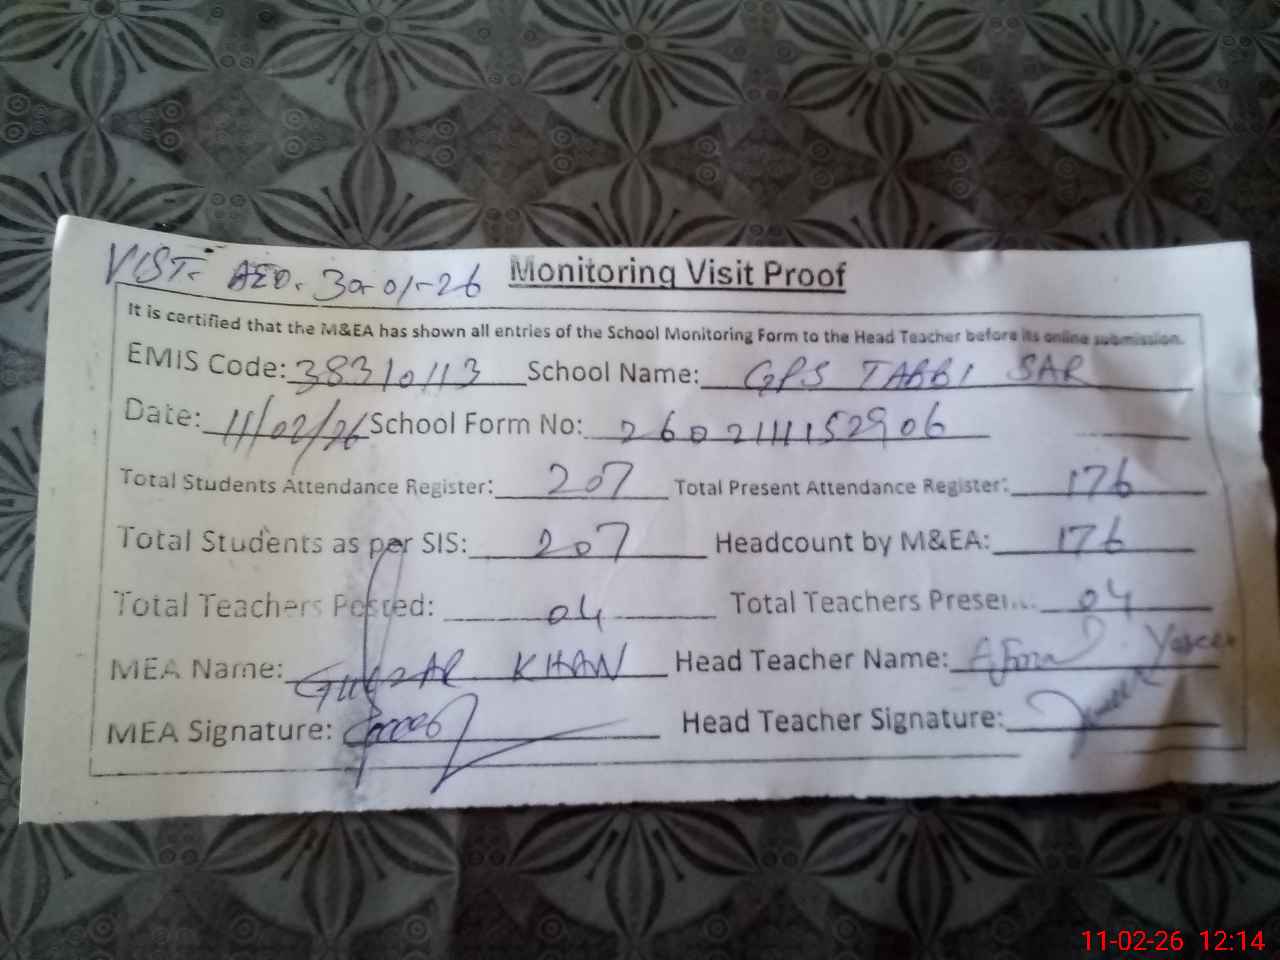 VIST. AEO. 30-01-26 Monitoring Visit Proof
It is certified that the M&EA has shown all entries of the School Monitoring Form to the Head Teacher before its online submission.
EMIS Code: 38310113 School Name: GPS TABBI SAR
Date: 11/02/26 School Form No: 26021111152906
Total Students Attendance Register: 207 Total Present Attendance Register: 176
Total Students as per SIS: 207 Headcount by M&EA: 176
Total Teachers Posted: 04 Total Teachers Present: 04
MEA Name: GULZAR KHAN Head Teacher Name:
MEA Signature: Head Teacher Signature:
11-02-26 12:14